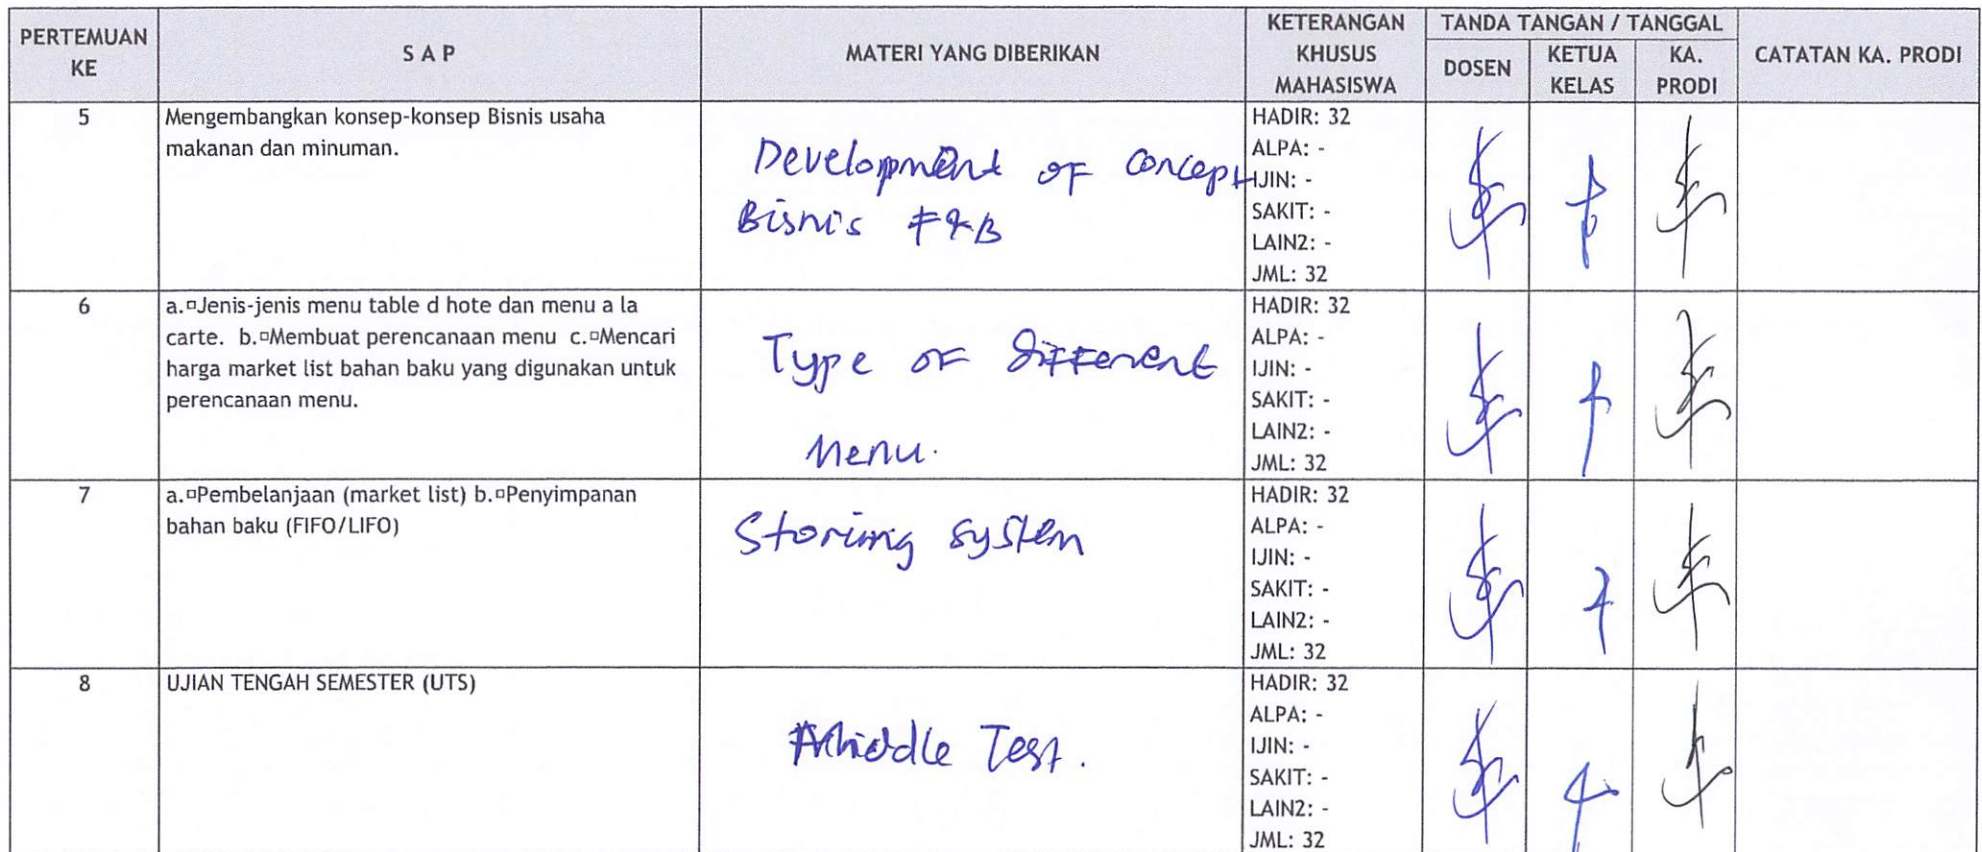 PERTEMUAN KE
S A P
MATERI YANG DIBERIKAN
KETERANGAN KHUSUS MAHASISWA
TANDA TANGAN / TANGGAL
DOSEN
KETUA KELAS
KA. PRODI
CATATAN KA. PRODI
5
Mengembangkan konsep-konsep Bisnis usaha
makanan dan minuman.
Development of Concept
Bisnis F&B
HADIR: 32
ALPA: -
IJIN: -
SAKIT: -
LAIN2: -
JML: 32
6
a.▫Jenis-jenis menu table d hote dan menu a la
carte. b.▫Membuat perencanaan menu c.▫Mencari
harga market list bahan baku yang digunakan untuk
perencanaan menu.
Type of Different
Menu.
HADIR: 32
ALPA: -
IJIN: -
SAKIT: -
LAIN2: -
JML: 32
7
a.▫Pembelanjaan (market list) b.▫Penyimpanan
bahan baku (FIFO/LIFO)
Storing system
HADIR: 32
ALPA: -
IJIN: -
SAKIT: -
LAIN2: -
JML: 32
8
UJIAN TENGAH SEMESTER (UTS)
Middle Test.
HADIR: 32
ALPA: -
IJIN: -
SAKIT: -
LAIN2: -
JML: 32